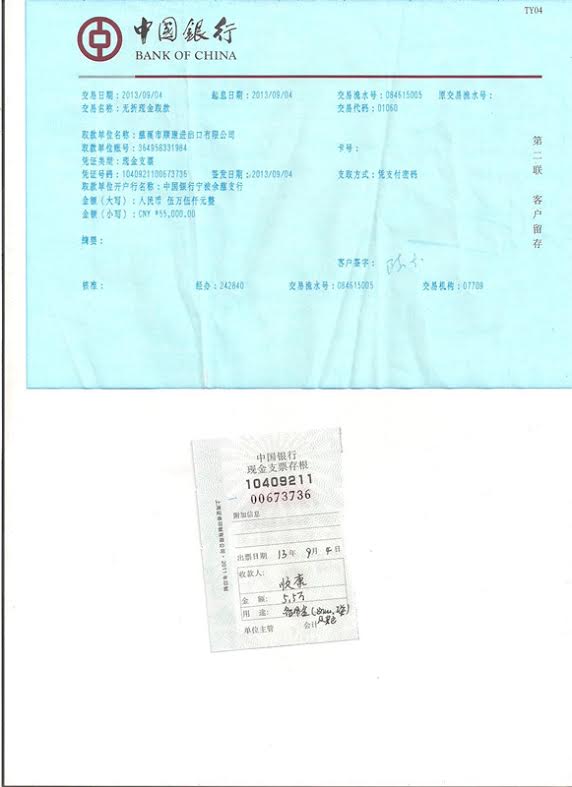 TY04
中国銀行
BANK OF CHINA
交易日期：2013/09/04 起息日期：2013/09/04 交易流水号：084615005 原交易流水号：
交易名称：无折现金取款 交易代码：01060
取款单位名称：慈溪市顺康进出口有限公司
取款单位账号：364958331984 卡号：
凭证类型：现金支票
凭证号码：1040921100673736 签发日期：2013/09/04 支取方式：凭支付密码
取款单位开户行名称：中国银行宁波余慈支行
金额（大写）：人民币 伍万伍仟元整
金额（小写）：CNY *55,000.00
摘要：
客户签字：
核准： 经办：242840 交易流水号：084615005 交易机构：07709
第二联 客户留存
中国银行
现金支票存根
10409211
00673736
附加信息
出票日期 13年 9月 4日
收款人：
金 额：5.5万
用 途：
单位主管 会计